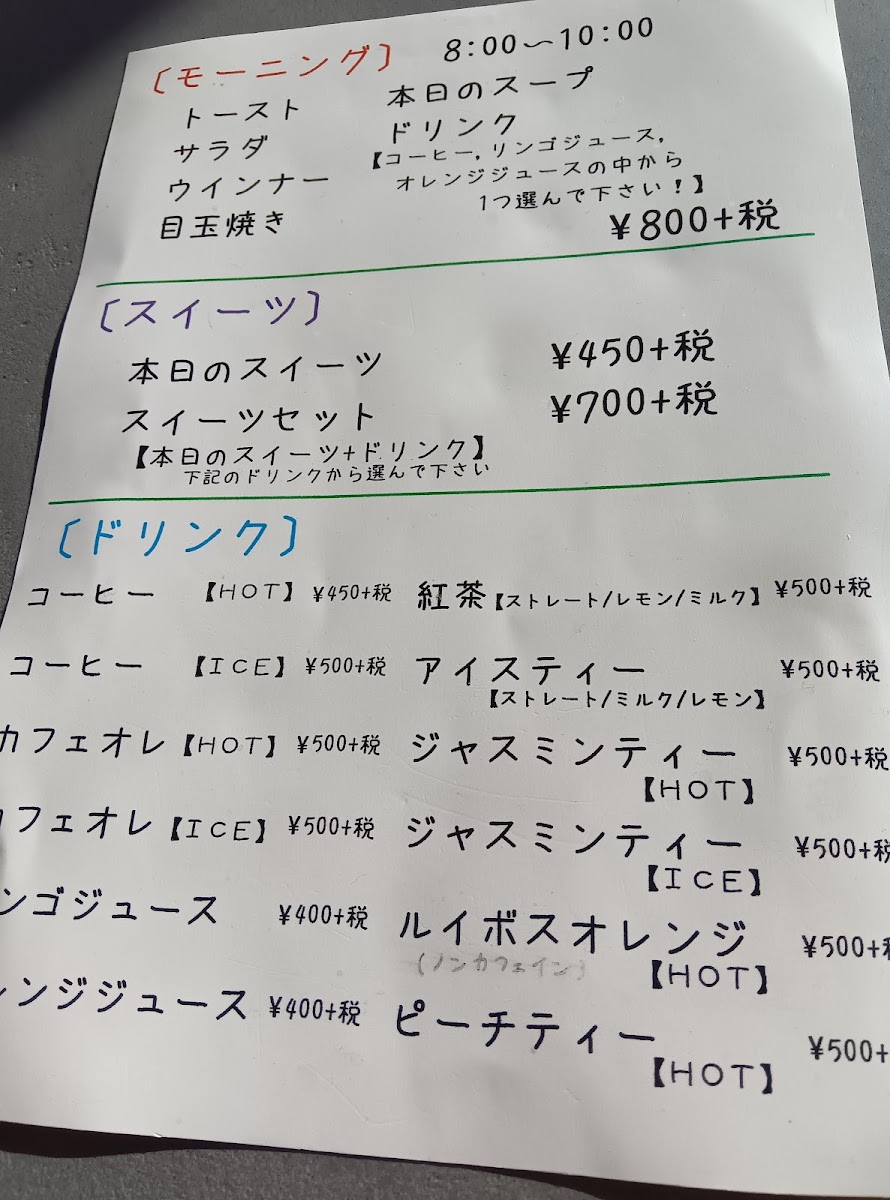 〔モーニング〕 8:00〜10:00
トースト 本日のスープ
サラダ ドリンク
【コーヒー,リンゴジュース,
ウインナー オレンジジュースの中から
1つ選んで下さい!】
目玉焼き
¥800+税
〔スイーツ〕
本日のスイーツ ¥450+税
スイーツセット ¥700+税
【本日のスイーツ+ドリンク】
下記のドリンクから選んで下さい
〔ドリンク〕
コーヒー 【HOT】 ¥450+税
コーヒー 【ICE】 ¥500+税
カフェオレ【HOT】 ¥500+税
フェオレ【ICE】 ¥500+税
ンゴジュース ¥400+税
レンジジュース ¥400+税
紅茶【ストレート/レモン/ミルク】 ¥500+税
アイスティー ¥500+税
【ストレート/ミルク/レモン】
ジャスミンティー ¥500+税
【HOT】
ジャスミンティー ¥500+税
【ICE】
ルイボスオレンジ ¥500+税
(ノンカフェイン) 【HOT】
ピーチティー ¥500+
【HOT】